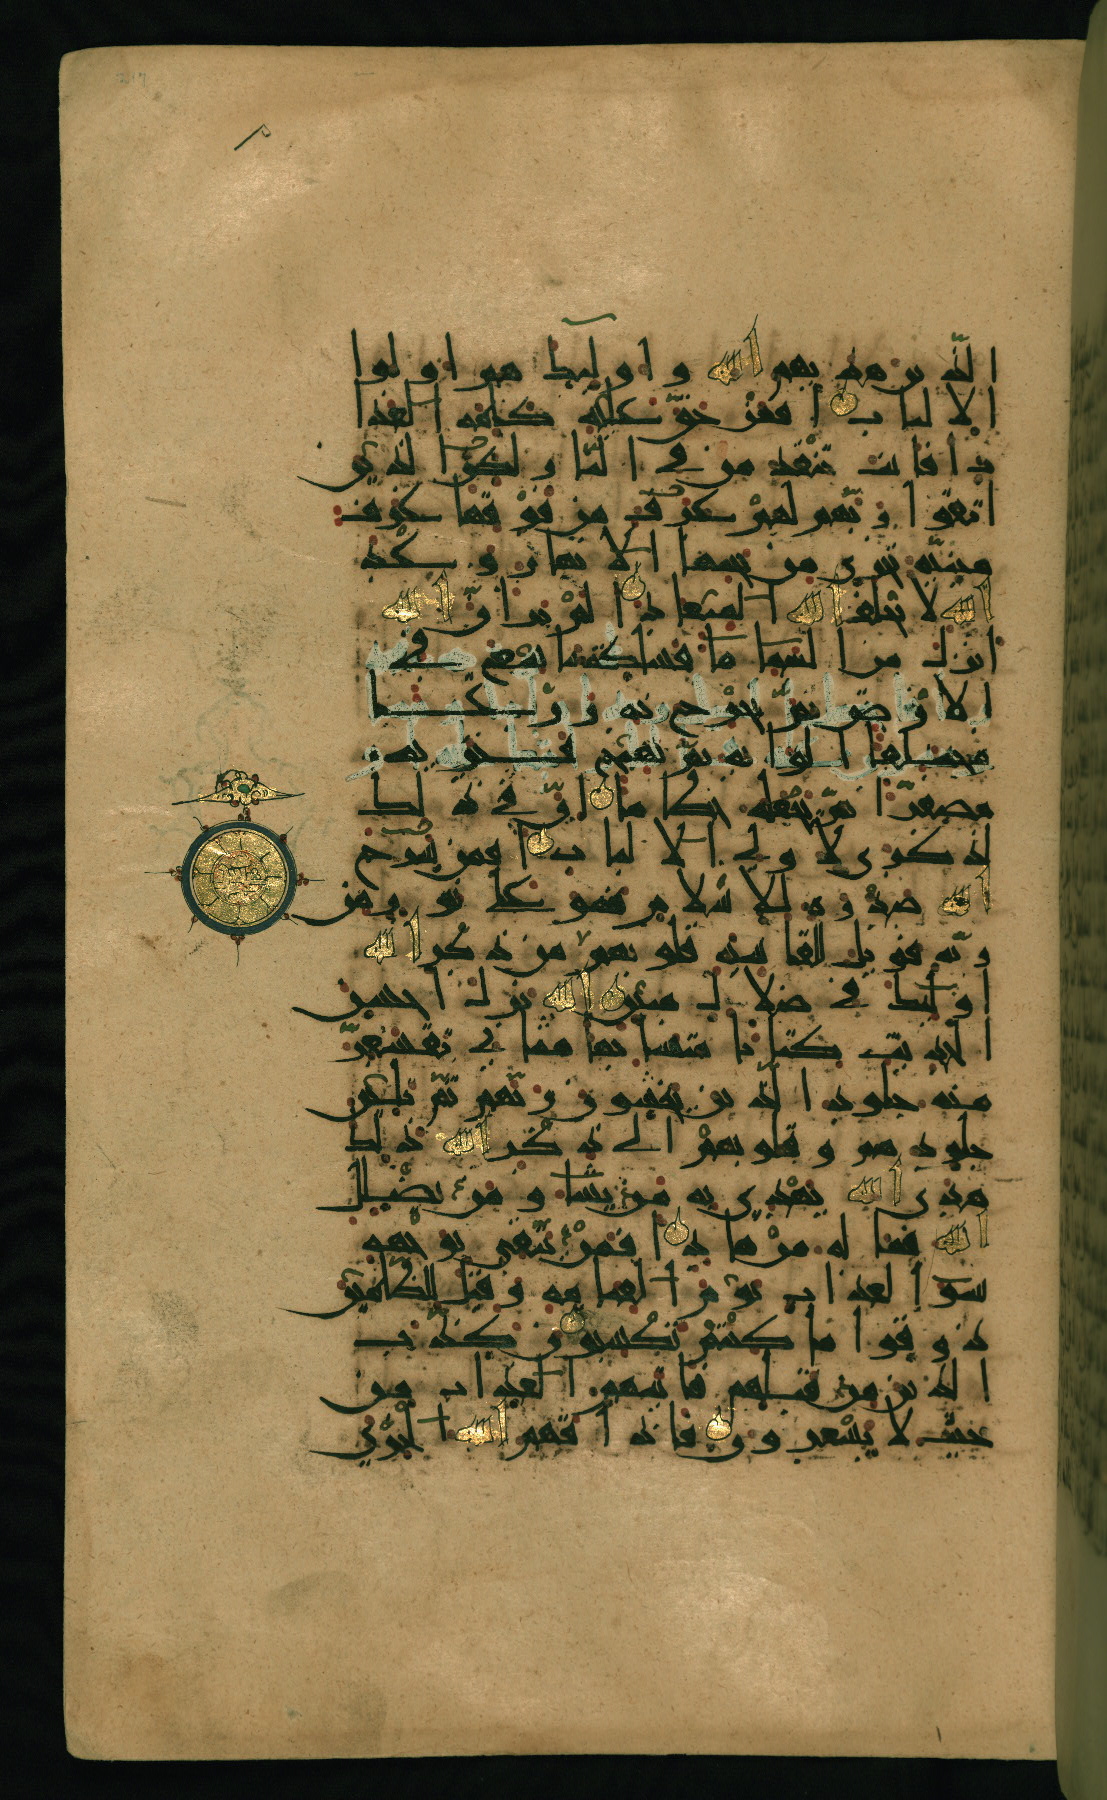 الذين هديهم الله واولئك هم اولوا
الالباب افمن حق عليه كلمة العذا
ب افانت تنقذ من في النار لكن الذين
اتقوا ربهم لهم غرف من فوقها غرف
مبنية تجري من تحتها الانهار وعد
الله لا يخلف الله الميعاد الم تر ان الله
انزل من السما ما فسلكه ينابيع في
الارض ثم يخرج به زرعا
مختلفا الوانه ثم يهيج فتريه
مصفرا ثم يجعله حطاما ان في ذلك
لذكرى لاولي الالباب افمن شرح
الله صدره للاسلام فهو على نور من
ربه فويل للقاسية قلوبهم من ذكر الله
اولئك في ضلال مبين الله نزل احسن
الحديث كتابا متشابها مثاني تقشعر
منه جلود الذين يخشون ربهم ثم تلين
جلودهم وقلوبهم الى ذكر الله ذلك
هدى الله يهدي به من يشا ومن يضلل
الله فما له من هاد افمن يتقي بوجهه
سو العذاب يوم القيامه وقيل للظالمين
ذوقوا ما كنتم تكسبون كذب
الذين من قبلهم فاتيهم العذاب من
حيث لا يشعرون فاذاقهم الله الخزي